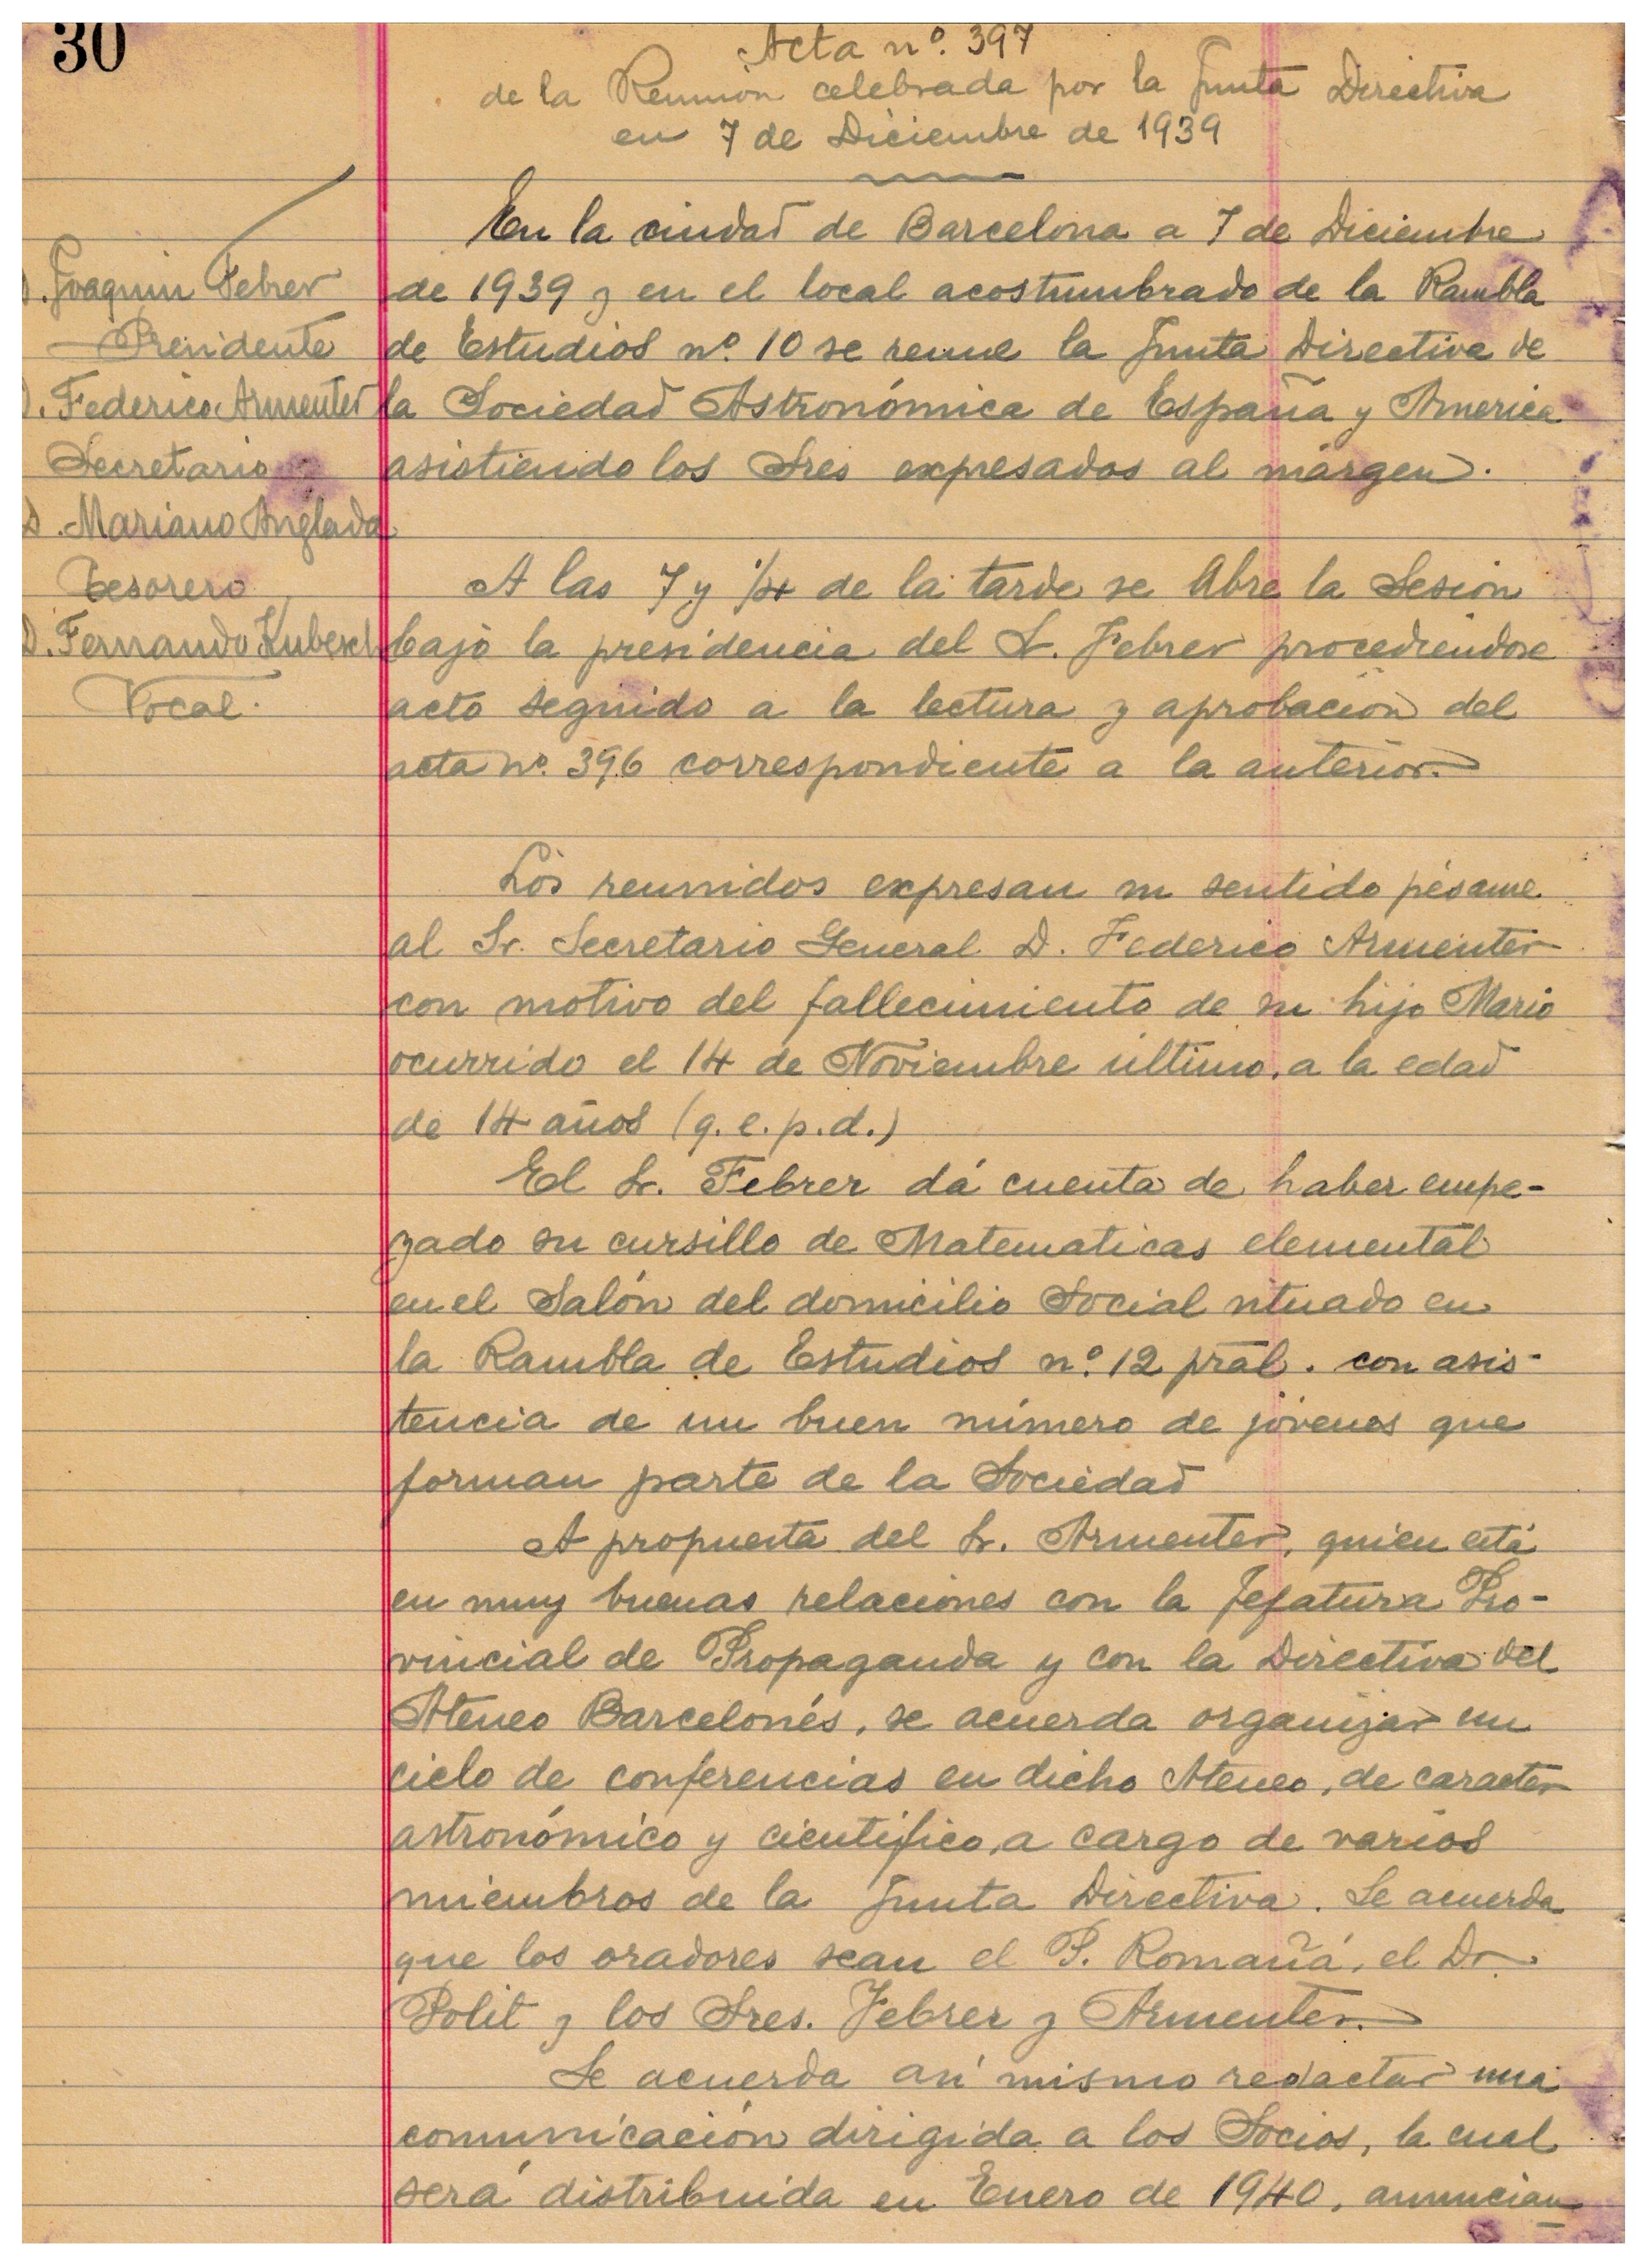 30
Acta nº. 397
de la Reunión celebrada por la Junta Directiva
en 7 de Diciembre de 1939
D. Joaquin Febrer
Presidente
D. Federico Armenter
Secretario
D. Mariano Anglada
Tesorero
D. Fernando Kubesch
Vocal.
En la ciudad de Barcelona a 7 de Diciembre
de 1939 y en el local acostumbrado de la Rambla
de Estudios nº. 10 se reune la Junta Directiva de
la Sociedad Astronómica de España y America
asistiendo los Sres expresados al márgen.
A las 7 y 1/4 de la tarde se Abre la Sesión
bajo la presidencia del Sr. Febrer procediendose
acto seguido a la lectura y aprobación del
acta nº. 396 correspondiente a la anterior.
Los reunidos expresan su sentido pésame
al Sr. Secretario General D. Federico Armenter
con motivo del fallecimiento de su hijo Mario
ocurrido el 14 de Noviembre último, a la edad
de 14 años (q.e.p.d.)
El Sr. Febrer dá cuenta de haber empe-
zado su cursillo de Matematicas elemental
en el Salón del domicilio Social situado en
la Rambla de Estudios nº. 12 pral. con asis-
tencia de un buen número de jóvenes que
forman parte de la Sociedad
A propuesta del Sr. Armenter, quien está
en muy buenas relaciones con la Jefatura Pro-
vincial de Propaganda y con la Directiva del
Ateneo Barcelonés, se acuerda organizar un
ciclo de conferencias en dicho Ateneo, de caracter
astronómico y científico, a cargo de varios
miembros de la Junta Directiva. Se acuerda
que los oradores sean el P. Romañá, el Dr.
Polit y los Sres. Febrer y Armenter.
Se acuerda así mismo redactar una
comunicación dirigida a los Socios, la cual
será distribuida en Enero de 1940, anuncian